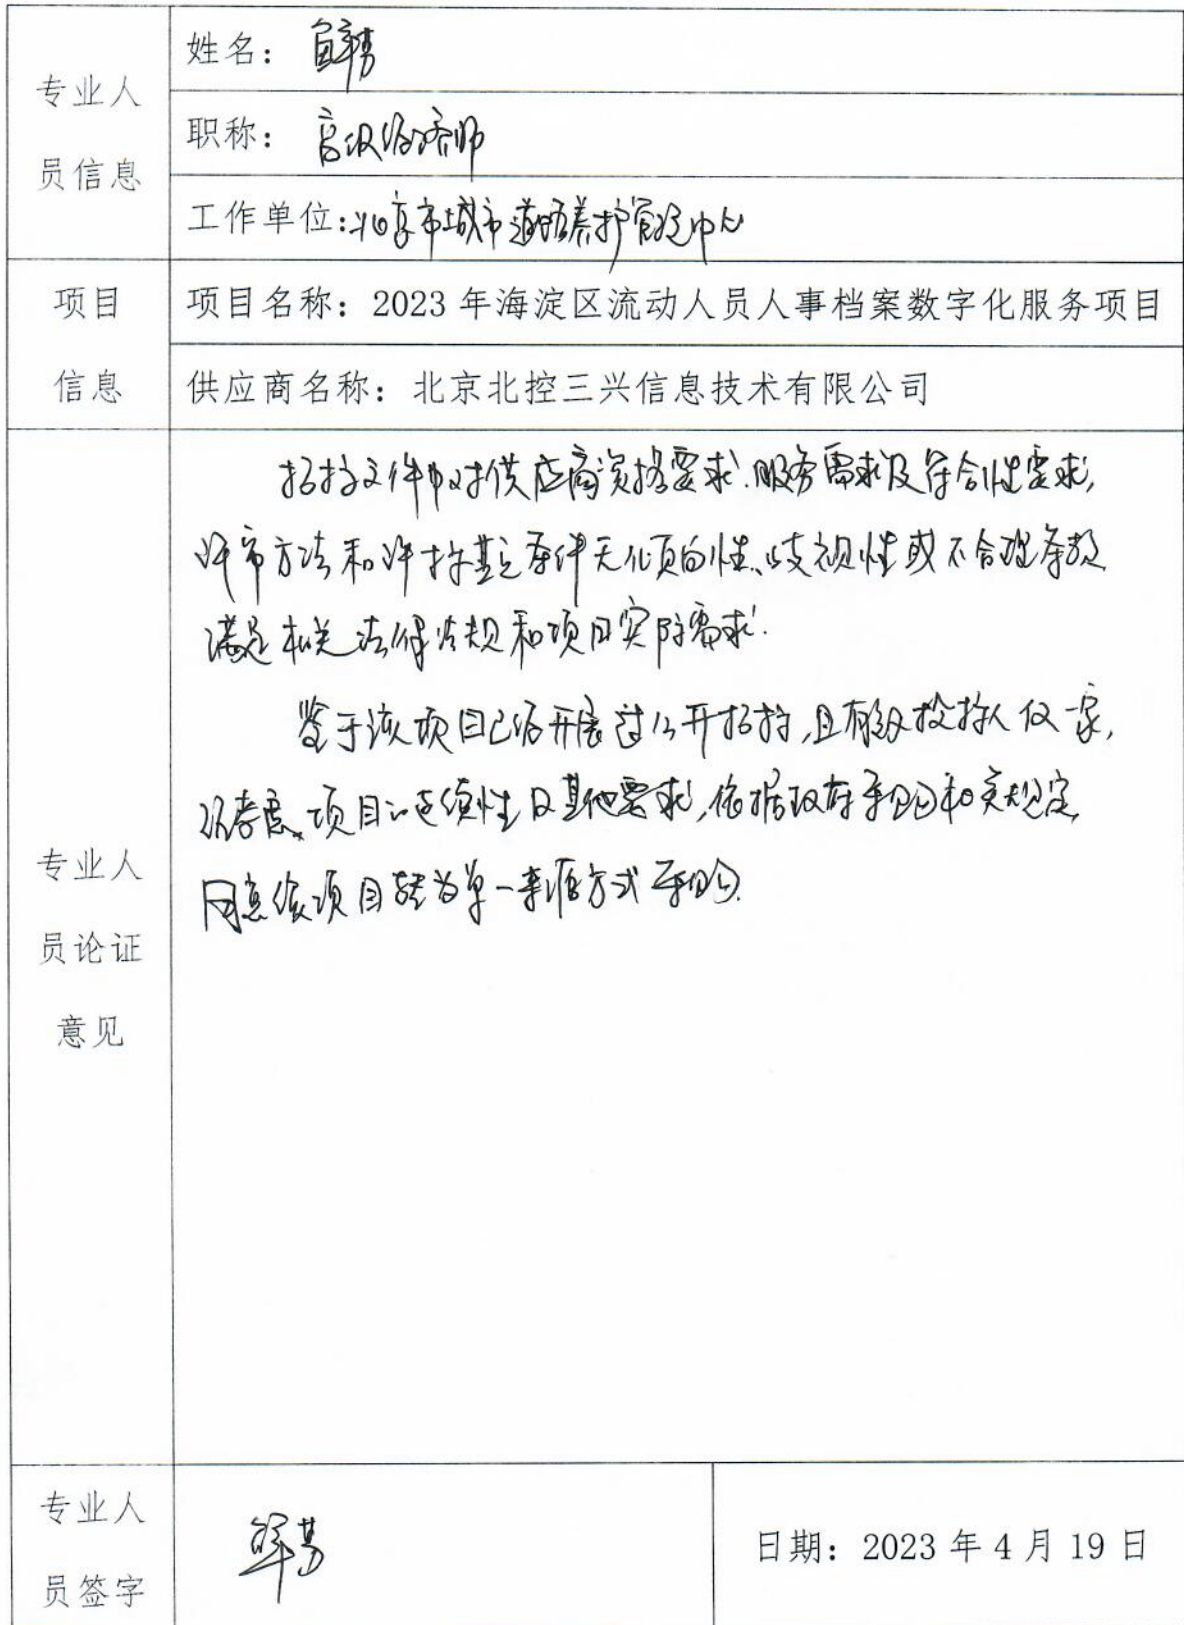 专业人
员信息
姓名：
职称：高级经济师
工作单位：北京市城市道路养护管理中心
项目
信息
项目名称：2023年海淀区流动人员人事档案数字化服务项目
供应商名称：北京北控三兴信息技术有限公司
专业人
员论证
意见
招标文件中对供应商资格要求、服务需求及符合性要求，
评审方法和评标基 条件无倾向性、歧视性或不合理条款
满足相关法律法规和项目实际需求.
鉴于该项目已经开展过公开招标，且有效投标人仅一家，
考虑项目的连续性及其他要求，依据政府采购相关规定，
同意 项目转为单一来源方式采购.
专业人
员签字
日期：2023年4月19日